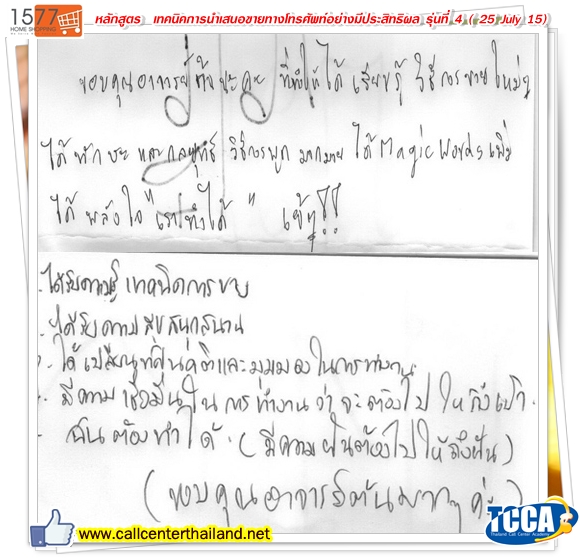 1577
HOME SHOPPING
หลักสูตร เทคนิคการนำเสนอขายทางโทรศัพท์อย่างมีประสิทธิผล รุ่นที่ 4 ( 25 July 15)
ขอบคุณอาจารย์ ที่ทำให้ได้ เรียนรู้ วิธีการขายใหม่ๆ
ได้ทักษะ และกลยุทธ์ วิธีการพูด มากมาย ได้ Magic Words เพิ่ม
ได้ พลังใจ "เราทำได้" เย้ๆ!!
- ได้รับความรู้ เทคนิคการขาย
- ได้รับความสุขสนุกสนาน
- ได้เปลี่ยนทัศนคติและมุมมองในการทำงาน
- มีความเชื่อมั่นในการทำงานว่าจะต้องไปให้ถึงเป้า
- ฉันต้องทำได้ (มีความฝันต้องไปให้ถึงฝัน)
(ขอบคุณอาจารย์ มากๆ ค่ะ)
www.callcenterthailand.net
TCCA
Thailand Call Center Academy